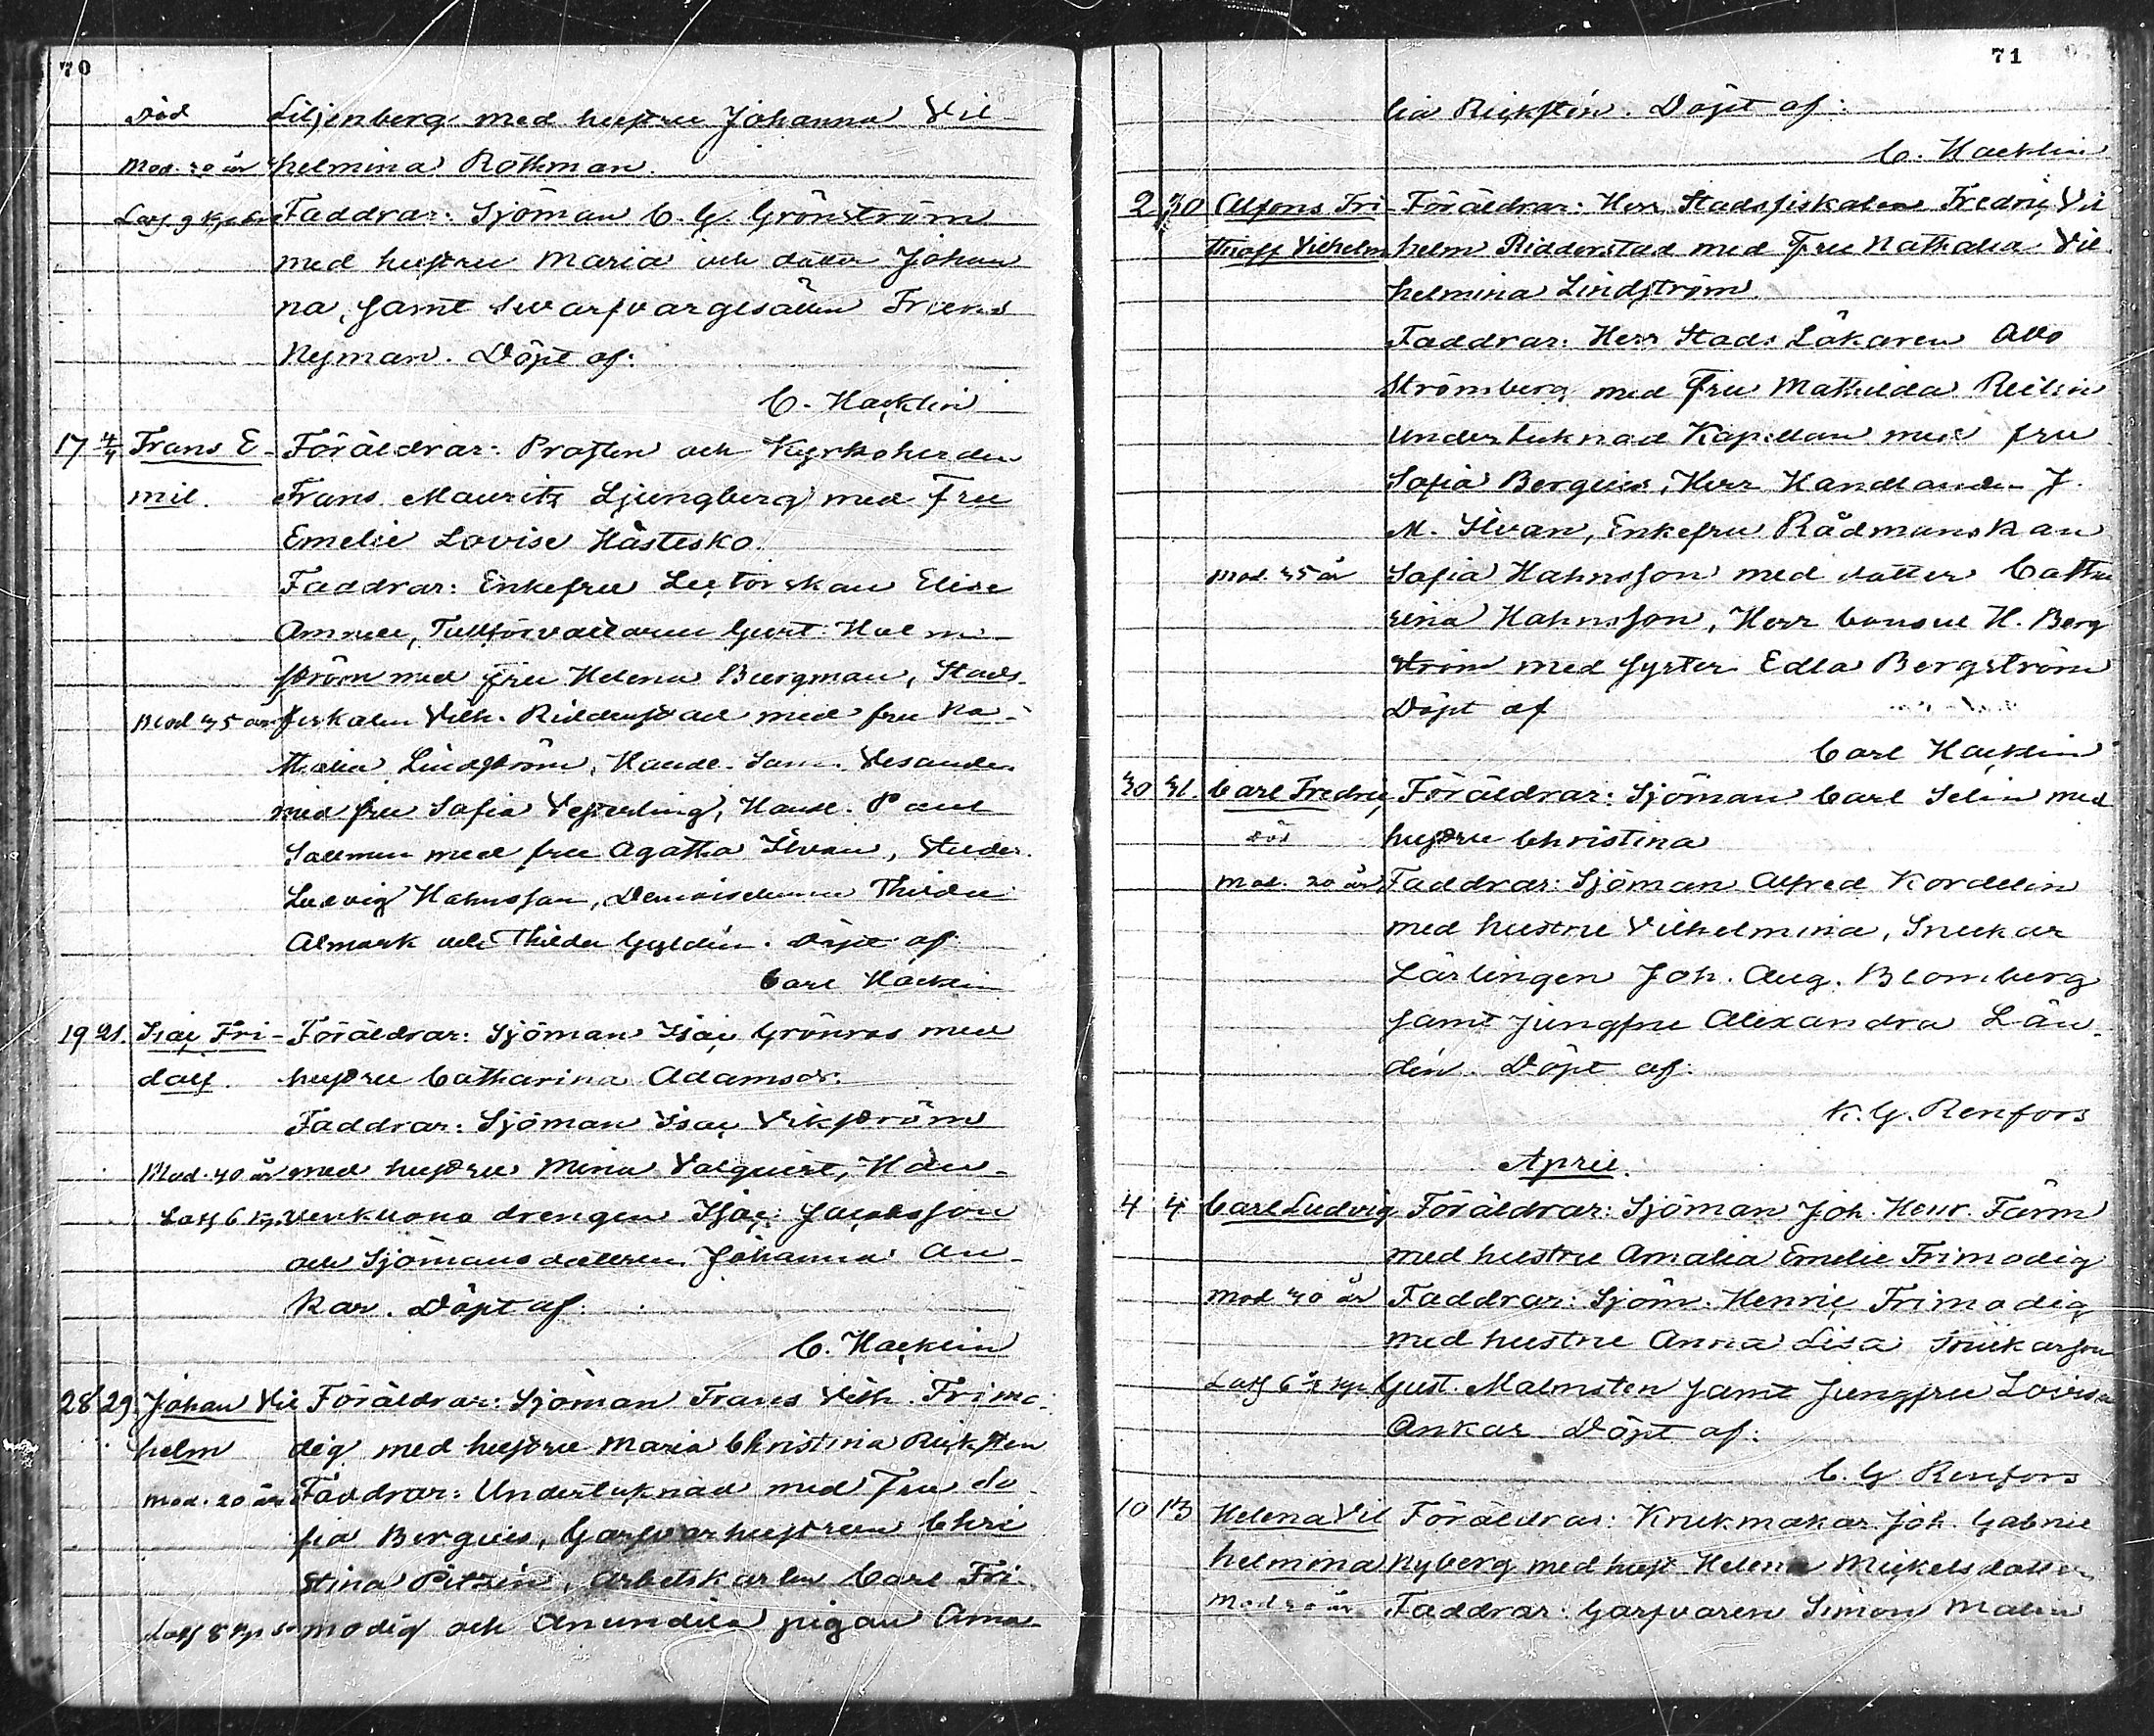 70
död Liljenberg med hustru Johanna Vil-
Mod. 20 år helmina Rothman.
Faddrar: Sjöman C. G. Grönström
med hustru Maria och dotter Johan
na, samt Svarfvargesällen Frans
Nyman. Döpt af:
C. Hacklin
17 4/4 Frans E- Föräldrar: Prosten och Kyrkoherden
mil. Frans Mauritz Ljungberg med Fru
Emelie Lovise Hästesko.
Faddrar: Enkefru Lectorskan Elise
Tullförvaltaren Gust. Holm-
ström med fru Helena Bergman, Stads-
Mod 35 år fiskalen Vilh. Ridderstad med fru Na-
thalia Lindström, Handl. Sam. Vesander
med fru Sofia Vesterling, Handl. Paul
Sallmen med fru Agatha Ilvan, Studer.
Ludvig Hahnsson, Demoisellerna Thilda
Almark och Thilda Gyldén. Döpt af
Carl Hacklin
19 21. Isac Fri- Föräldrar: Sjöman Isac Grönros med
dolf. hustru Catharina Adamsdr.
Faddrar: Sjöman Isac Vikström
Mod. 40 år med hustru Mina Valquist, Han-
drengen Isac Jacobsson
och Sjömansdottren Johanna An-
kar. Döpt af:
C. Hacklin
28 29. Johan Vil Föräldrar: Sjöman Frans Vilh. Frimo-
helm dig med hustru Maria Christina Rickstén
Mod. 20 år Faddrar: Undertecknad med Fru So-
fia Bergius, Garfvarhustrun Chri
stina Pitzén, Arbetskarlen Carl Fri-
modig och Anundila pigan Ama-
71
lia Rickstén. Döpt af:
C. Hacklin
2 30 Alfons Fri Föräldrar: Herr Stadsfiskalen Fredric Vil
thioff Vilhelm helm Ridderstad med Fru Nathalia Vil
helmina Lindström.
Faddrar: Herr Stads Läkaren
Strömberg med Fru Mathilda
Undertecknad Kapellan med fru
Sofia Bergius, Herr Handlanden J.
M. Ilvan, Enkefru Rådmanskan
Mod. 35 år Sofia Hahnsson med dotter Catha
rina Hahnsson, Herr Consul H. Berg
ström med syster Edla Bergström
Döpt af
Carl Hacklin
30 31. Carl Fredric Föräldrar: Sjöman Carl Selin med
död hustru Christina
Mod. 20 år Faddrar: Sjöman Alfred Kordelin
med hustru Vilhelmina, Snickar
Lärlingen Joh. Aug. Blomberg
samt jungfru Alexandra Län-
dén. Döpt af:
K. G. Renfors
April.
4 4 Carl Ludvig Föräldrar: Sjöman Joh. Henr. Färm
med hustru Amalia Emelie Frimodig
Mod 30 år Faddrar: Sjöm. Henric Frimodig
med hustru Anna Lisa
Gust. Malmsten samt Jungfru Lovisa
Ankar. Döpt af:
C. G. Renfors
10 13 Helena Vil Föräldrar: Krukmakar Joh. Gabriel
helmina Nyberg med hust. Helena Mickelsdotter
Faddrar: Garfvaren Simon Malin